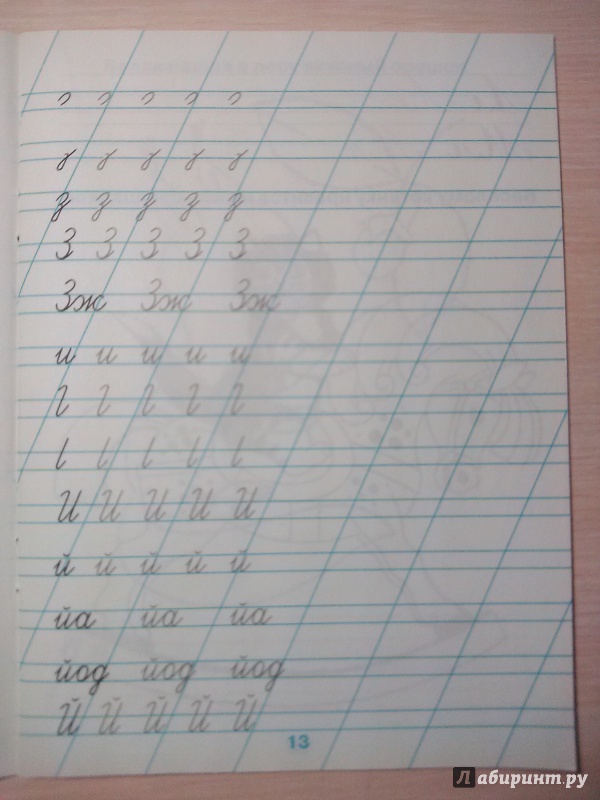 з з з з з
З З З З З
Зж Зж Зж
и и и и и
И И И И И
й й й й й
йа йа йа
йод йод йод
Й Й Й Й Й
13
Лабиринт.ру